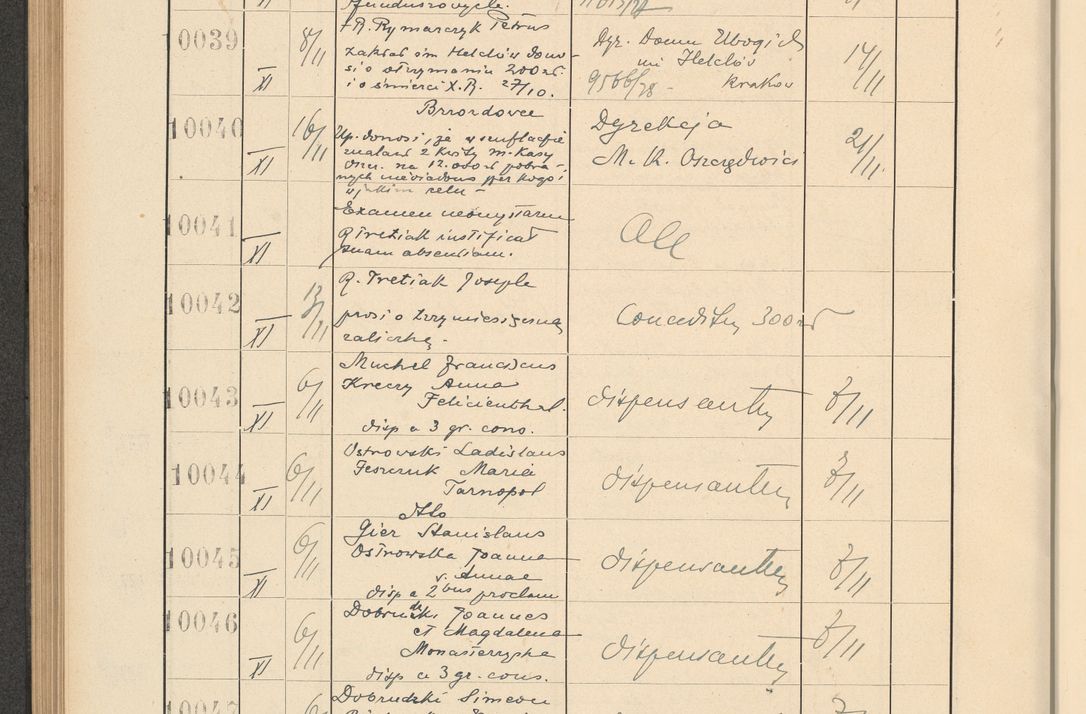 funduszowych.
10039
XI
8/11
+R. Rymarczyk Petrus
zakład im Helclów dono-
si o otrzymaniu 200 zł.
i o śmierci X. R. 27/10.
Dyr. Domu Ubogich
im Helclów
9566/28 - Kraków
14/11
10040
XI
16/11
Brzozdowce
Up. donosi, że w
znalazł 2 kwity m. Kasy
oszcz. na 12.000 zł pobra-
nych niewiadomo per kogo i
w jakim celu -
Dyrekcja
M. K. Oszczędności
21/11
10041
XI
Examen
R Tretiak iustificat
suam absentiam.
10042
XI
R. Tretiak Joseph
prosi o trzymiesięczną
zaliczkę.
300 zł
10043
XI
6/11
Muchel Franciscus
Kreczy Anna
Felicienthal.
disp a 3 gr. cons.
dispensantur
7/11
10044
XI
6/11
Ostrowski Ladislaus
Jeszczuk Maria
Tarnopol
dispensantur
7/11
10045
XI
6/11
Gier Stanislaus
Ostrowska Joanna
v. Annae
disp a 2bus proclam
dispensantur
7/11
10046
XI
6/11
Dobrudzki Joannes
et Magdalena
Monasterzyska
disp a 3 gr. cons.
dispensantur
7/11
10047
Dobrudzki Simeon